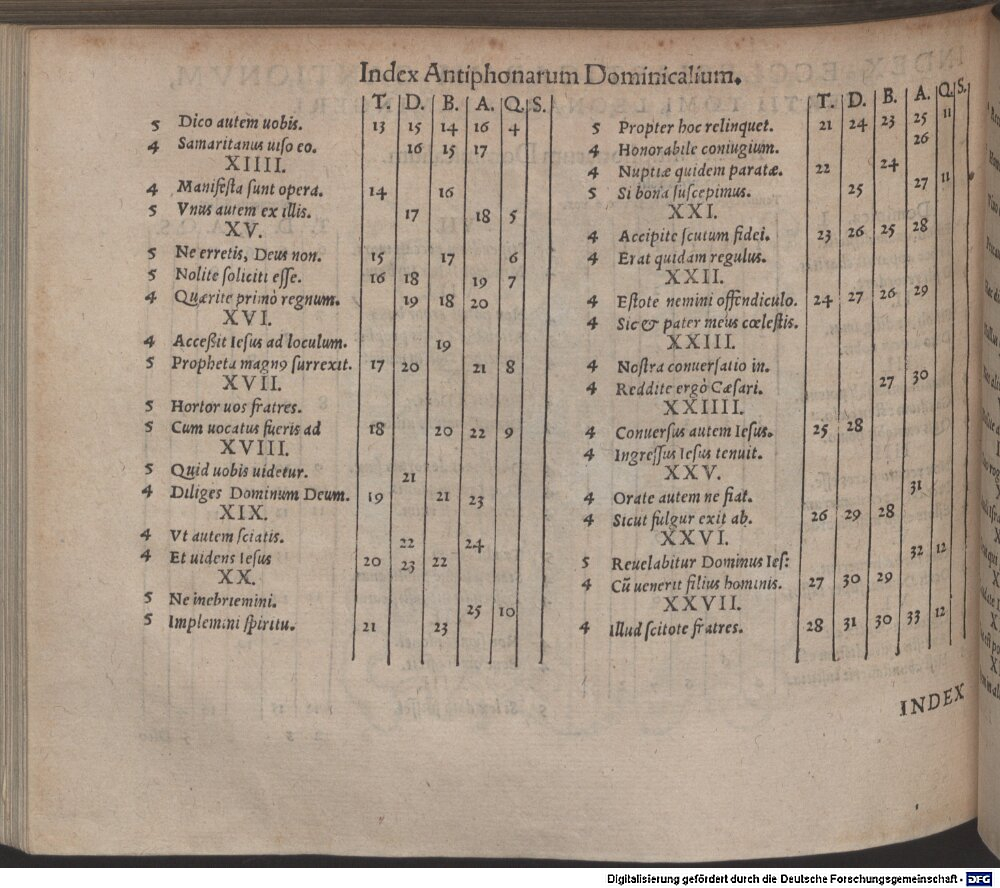 Index Antiphonarum Dominicalium.
T. D. B. A. Q. S.
5 Dico autem uobis. 13 15 14 16 4
4 Samaritanus uiso eo. 16 15 17
XIIII.
4 Manifesta sunt opera. 14 16
5 Vnus autem ex illis. 17 18 5
XV.
5 Ne erretis, Deus non. 15 17 6
5 Nolite soliciti esse. 16 18 19 7
4 Quærite primò regnum. 19 18 20
XVI.
4 Acceßit Iesus ad loculum. 19
5 Propheta magn9 surrexit. 17 20 21 8
XVII.
5 Hortor uos fratres.
5 Cum uocatus fueris ad 18 20 22 9
XVIII.
5 Quid uobis uidetur. 21
4 Diliges Dominum Deum. 19 21 23
XIX.
4 Vt autem sciatis. 22 24
4 Et uidens Iesus 20 23 22
XX.
5 Ne inebriemini. 25 10
5 Implemini spiritu. 21 23
T. D. B. A. Q. S.
5 Propter hoc relinquet. 21 24 23 25 11
4 Honorabile coniugium. 26
4 Nuptiæ quidem paratæ. 22 24
5 Si bona suscepimus. 25 27 11
XXI.
4 Accipite scutum fidei. 23 26 25 28
4 Erat quidam regulus.
XXII.
4 Estote nemini offendiculo. 24 27 26 29
4 Sic & pater meus cœlestis.
XXIII.
4 Nostra conuersatio in.
4 Reddite ergò Cæsari. 27 30
XXIIII.
4 Conuersus autem Iesus. 25 28
4 Ingressus Iesus tenuit.
XXV.
4 Orate autem ne fiat. 31
4 Sicut fulgur exit ab. 26 29 28
XXVI.
5 Reuelabitur Dominus Ies: 32 12
4 Cũ uenerit filius hominis. 27 30 29
XXVII.
4 Illud scitote fratres. 28 31 30 33 12
INDEX
Digitalisierung gefördert durch die Deutsche Forschungsgemeinschaft - DFG